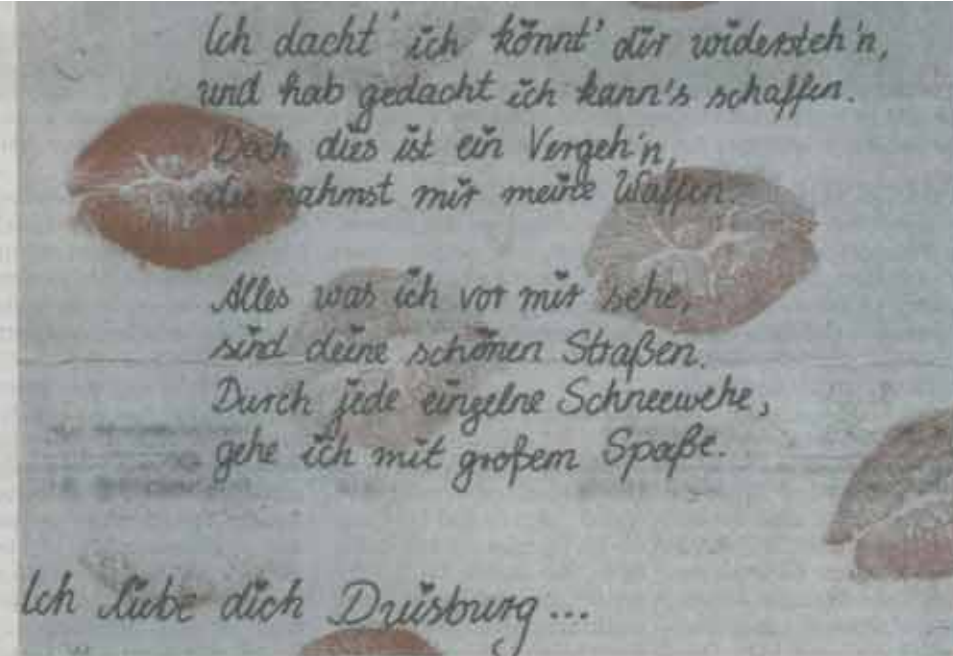 Ich dacht' ich könnt' dir widersteh'n,
und hab gedacht ich kann's schaffen.
Doch dies ist ein Vergeh'n,
du nahmst mir meine Waffen.
Alles was ich vor mir sehe,
sind deine schönen Straßen.
Durch jede einzelne Schneewehe,
gehe ich mit großem Spaße.
Ich liebe dich Duisburg...